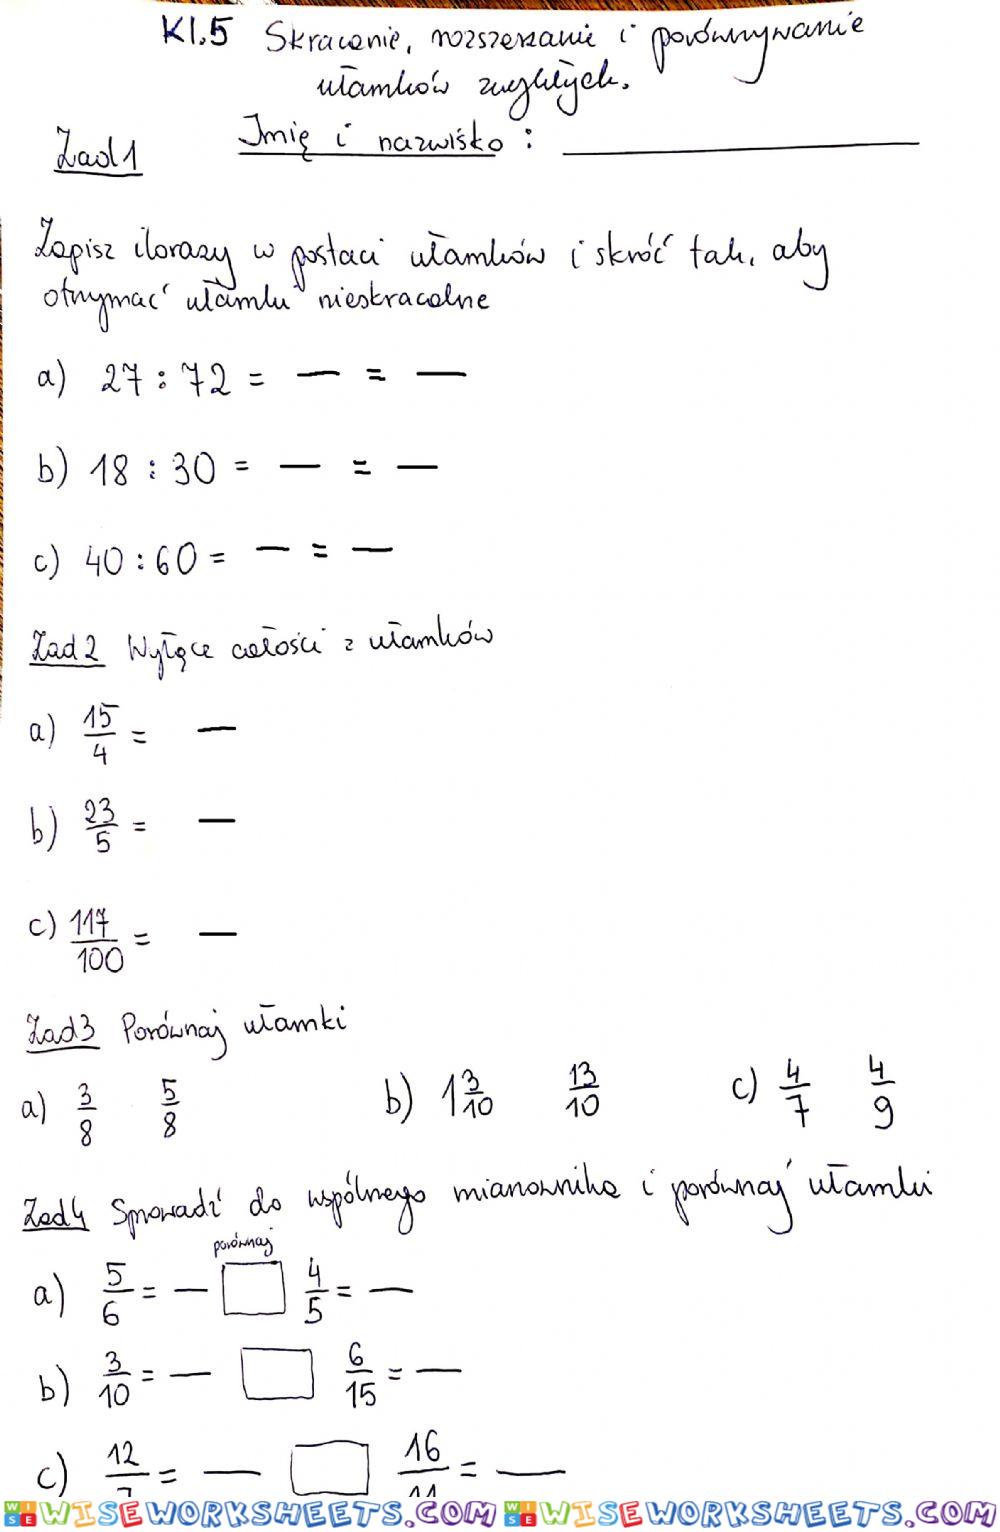 Kl.5 Skracanie, rozszerzanie i porównywanie
ułamków zwykłych.
Zad1 Imię i nazwisko :
Zapisz ilorazy w postaci ułamków i skróć tak, aby
otrzymać ułamki nieskracalne
a) 27 : 72 = — = —
b) 18 : 30 = — = —
c) 40 : 60 = — = —
Zad2 Wyłące całości z ułamków
a) 15/4 = —
b) 23/5 = —
c) 117/100 = —
Zad3 Porównaj ułamki
a) 3/8 5/8 b) 1 3/10 13/10 c) 4/7 4/9
Zad4 Sprowadź do wspólnego mianownika i porównaj ułamki
porównaj
a) 5/6 = — 4/5 = —
b) 3/10 = — 6/15 = —
c) 12/7 = — 16/11 = —
WISEWORKSHEETS.COM WISEWORKSHEETS.COM